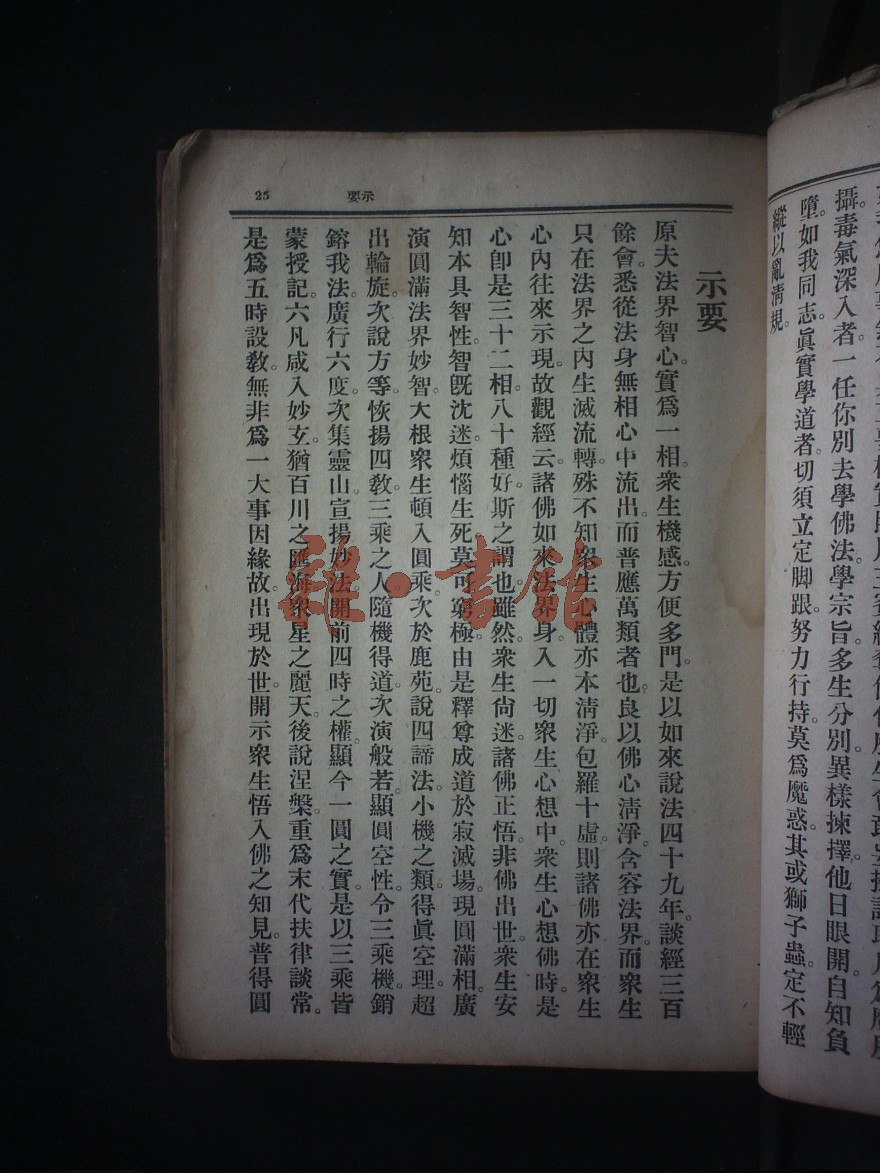 攝。毒氣深入者。一任你別去學佛法。學宗旨。多生分別。異樣揀擇。他日眼開。自知負
墮。如我同志。眞實學道者。切須立定脚跟。努力行持。莫爲魔惑。其或獅子蟲。定不輕
縱。以亂淸規。
示要
25
示要
原夫法界智心。實爲一相。衆生機感。方便多門。是以如來說法四十九年。談經三百
餘會。悉從法身無相心中流出。而普應萬類者也。良以佛心淸淨。含容法界。而衆生
只在法界之內。生滅流轉。殊不知衆生心體。亦本淸淨。包羅十虛。則諸佛亦在衆生
心內。往來示現。故觀經云。諸佛如來法界身。入一切衆生心想中。衆生心想佛時。是
心卽是三十二相。八十種好。斯之謂也。雖然。衆生尙迷。諸佛正悟。非佛出世。衆生安
知本具智性。智旣沈迷。煩惱生死。莫可窮極。由是釋尊成道於寂滅場。現圓滿相。廣
演圓滿法界妙智。大根衆生。頓入圓乘。次於鹿苑。說四諦法。小機之類。得眞空理。超
出輪旋。次說方等。恢揚四敎。三乘之人。隨機得道。次演般若。顯圓空性。令三乘機。銷
鎔我法。廣行六度。次集靈山。宣揚妙法。開前四時之權。顯今一圓之實。是以三乘皆
蒙授記。六凡咸入妙玄。猶百川之匯海。衆星之麗天。後說涅槃。重爲末代扶律談常。
是爲五時設敎。無非爲一大事因緣故。出現於世。開示衆生悟入佛之知見。普得圓